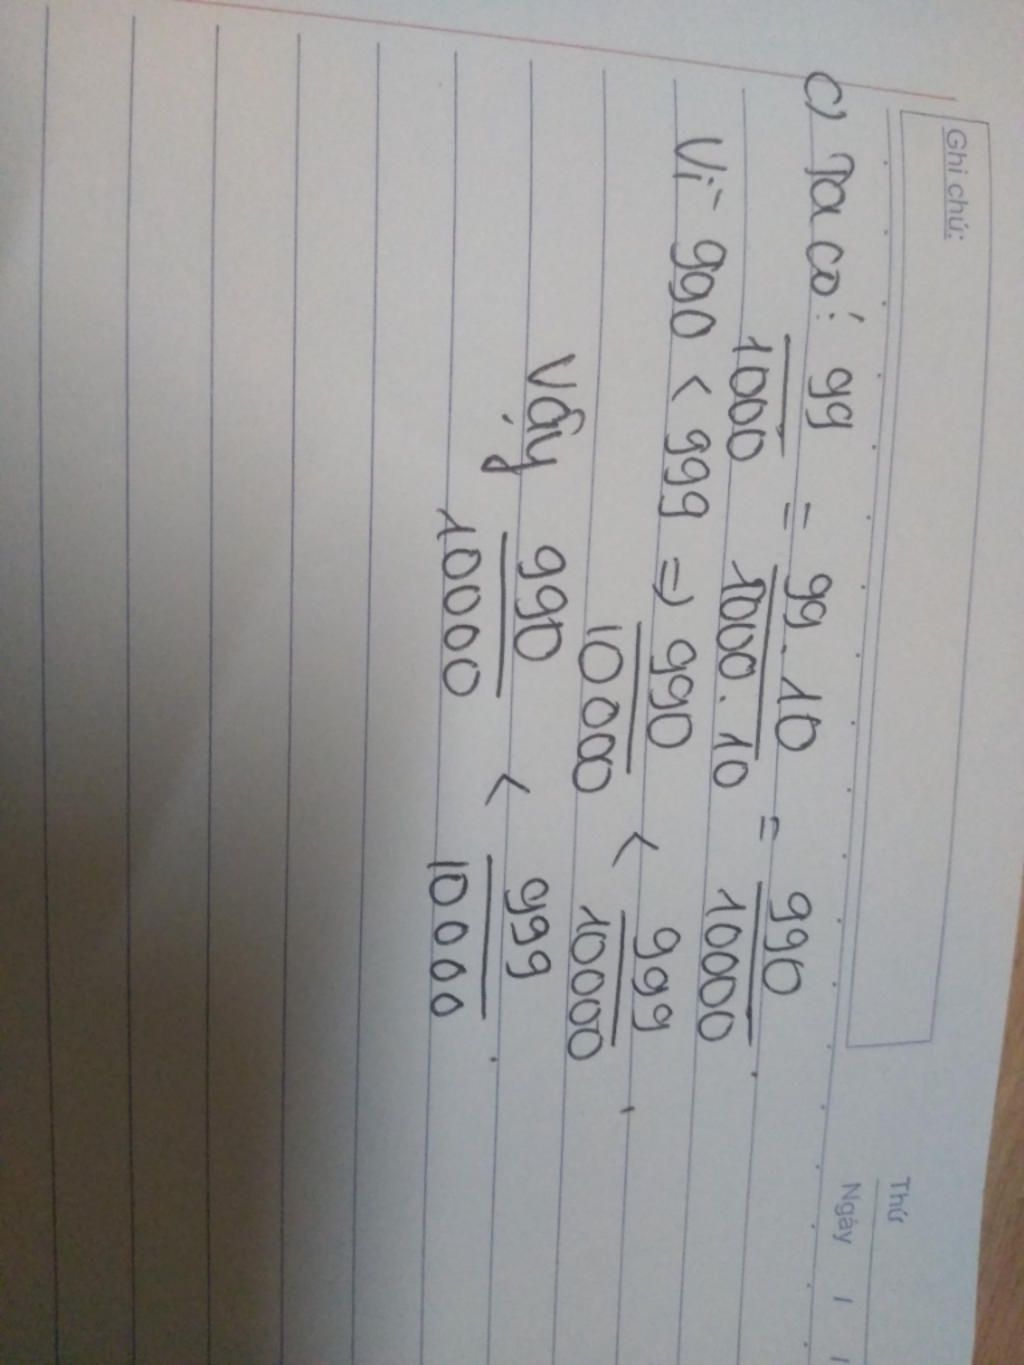 Ghi chú:
Thứ
Ngày / /
c) Ta có: 99/1000 = 99.10/1000.10 = 990/10000.
Vì 990 < 999 => 990/10000 < 999/10000,
Vậy 990/10000 < 999/10000.